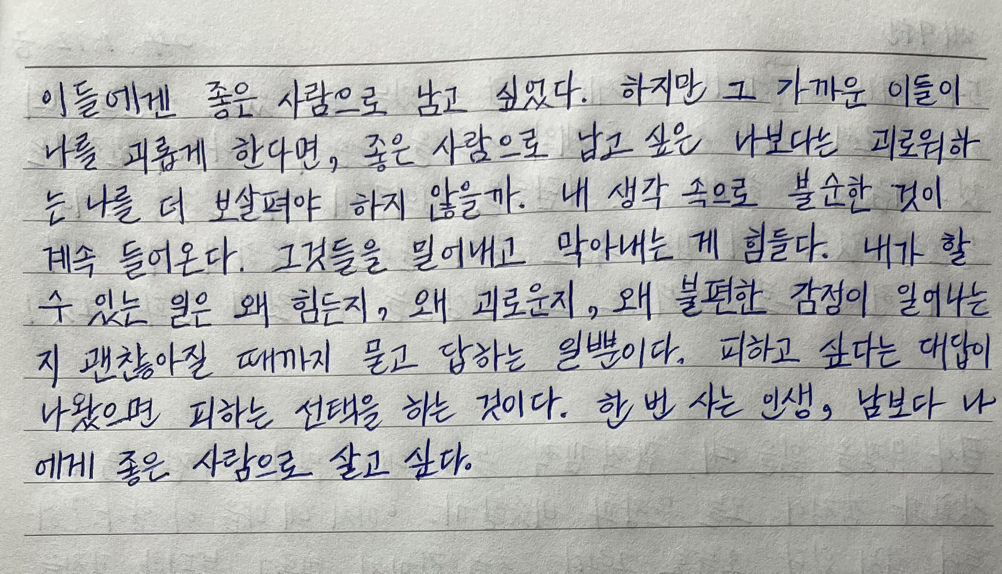 이들에겐 좋은 사람으로 남고 싶었다. 하지만 그 가까운 이들이
나를 괴롭게 한다면, 좋은 사람으로 남고 싶은 나보다는 괴로워하
는 나를 더 보살펴야 하지 않을까. 내 생각 속으로 불순한 것이
계속 들어온다. 그것들을 밀어내고 막아내는 게 힘들다. 내가 할
수 있는 일은 왜 힘든지, 왜 괴로운지, 왜 불편한 감정이 일어나는
지 괜찮아질 때까지 묻고 답하는 일뿐이다. 피하고 싶다는 대답이
나왔으면 피하는 선택을 하는 것이다. 한 번 사는 인생, 남보다 나
에게 좋은 사람으로 살고 싶다.